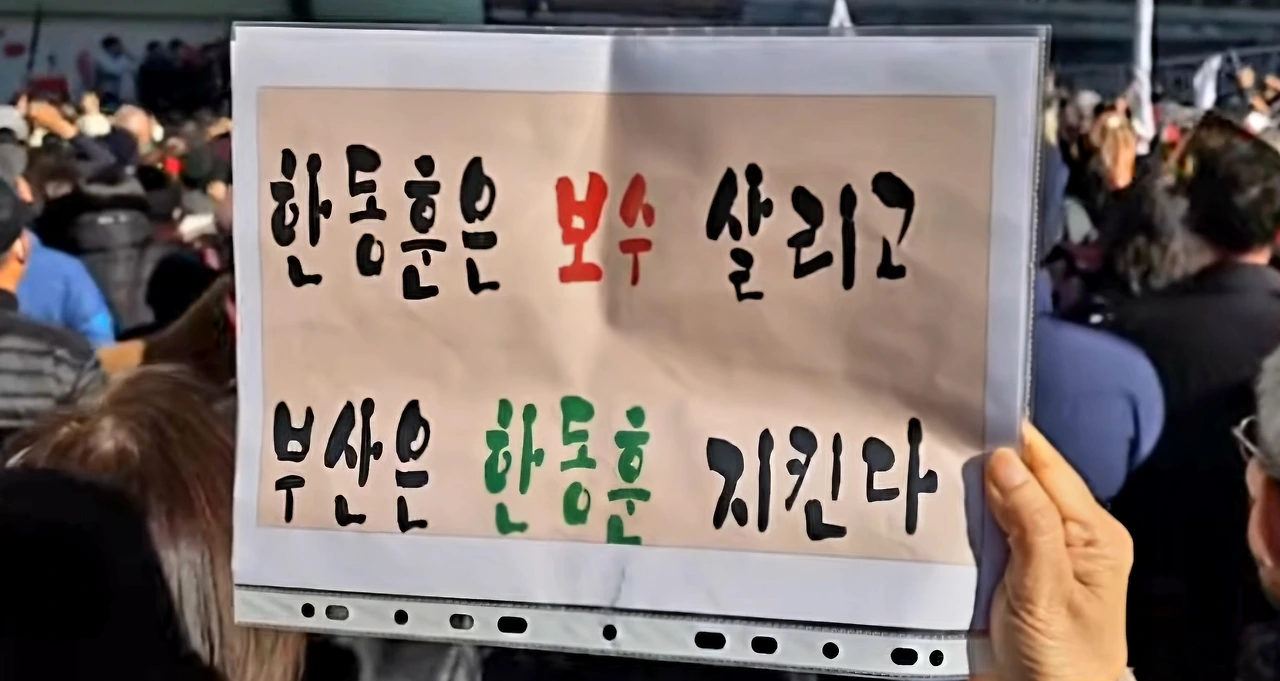 한동훈은 보수 살리고
부산은 한동훈 지킨다